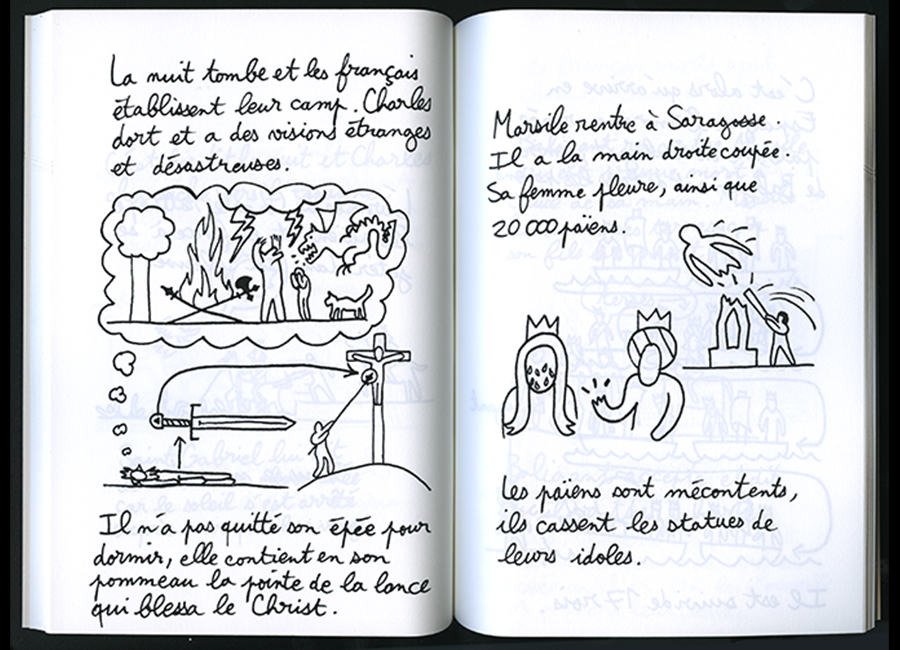 La nuit tombe et les français
établissent leur camp. Charles
dort et a des visions étranges
et désastreuses.
Il n'a pas quitté son épée pour
dormir, elle contient en son
pommeau la pointe de la lance
qui blessa le Christ.
Marsile rentre à Saragosse.
Il a la main droite coupée.
Sa femme pleure, ainsi que
20 000 païens.
Les païens sont mécontents,
ils cassent les statues de
leurs idoles.